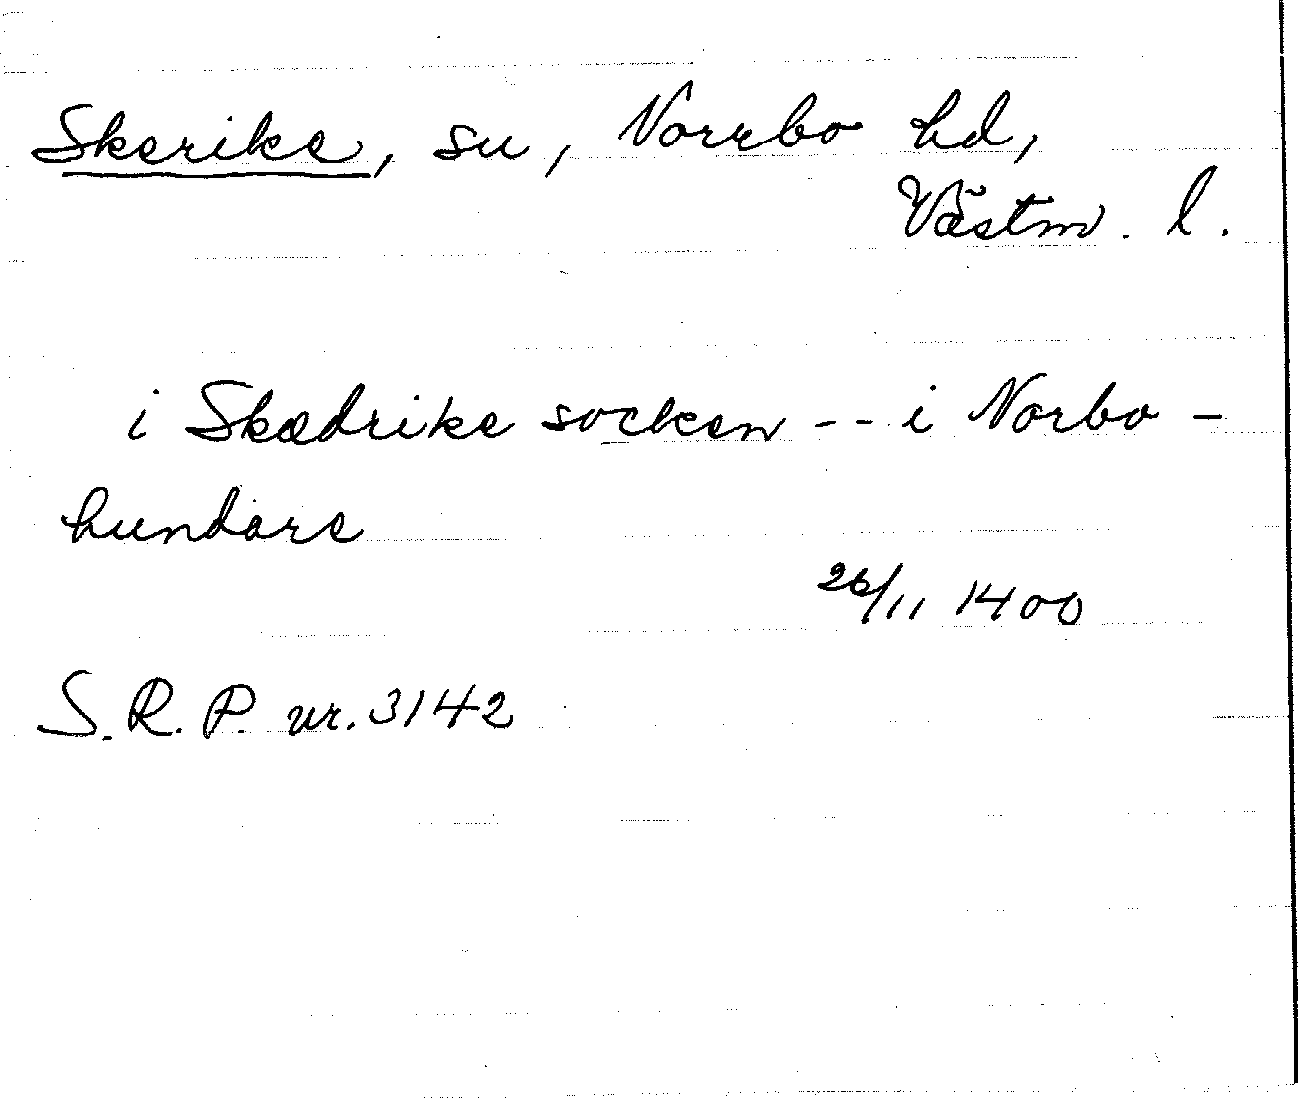 Skerike, sn, Norrbo hd,
Västm. l.
i Skædrike socken -- i Norbo -
hundare
26/11 1400
S. R. P. nr. 3142